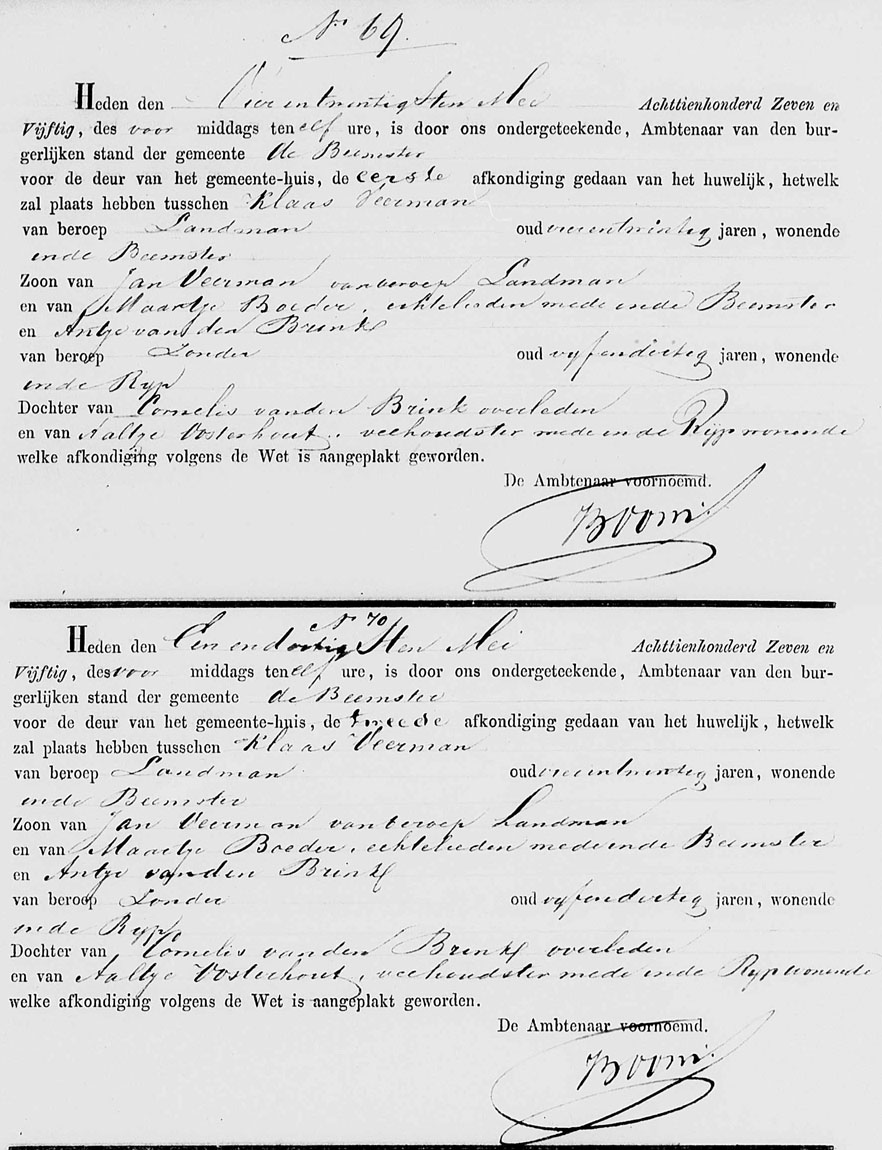 No 69.
Heden den Vier en twintigsten Mei Achttienhonderd Zeven en
Vijftig, des voor middags ten elf ure, is door ons ondergeteekende, Ambtenaar van den bur-
gerlijken stand der gemeente de Beemster
voor de deur van het gemeente-huis, de eerste afkondiging gedaan van het huwelijk, hetwelk
zal plaats hebben tusschen Klaas Veerman
van beroep Landman oud vierentwintig jaren, wonende
in de Beemster
Zoon van Jan Veerman van beroep Landman
en van Maartje Boeder, echtelieden mede in de Beemster
en Antje van den Brink
van beroep Zonder oud vyfendertig jaren, wonende
in de Ryp
Dochter van Cornelis van den Brink overleden
en van Aaltje Oosterhout, veehoudster mede in de Ryp wonende
welke afkondiging volgens de Wet is aangeplakt geworden.
De Ambtenaar voornoemd.
No 70
Heden den Een en dertigsten Mei Achttienhonderd Zeven en
Vijftig, des voor middags ten elf ure, is door ons ondergeteekende, Ambtenaar van den bur-
gerlijken stand der gemeente de Beemster
voor de deur van het gemeente-huis, de tweede afkondiging gedaan van het huwelijk, hetwelk
zal plaats hebben tusschen Klaas Veerman
van beroep Landman oud vierentwintig jaren, wonende
in de Beemster
Zoon van Jan Veerman van beroep Landman
en van Maartje Boeder, echtelieden mede in de Beemster
en Antje van den Brink
van beroep Zonder oud vyfendertig jaren, wonende
in de Ryp
Dochter van Cornelis van den Brink overleden
en van Aaltje Oosterhout, veehoudster mede in de Ryp wonende
welke afkondiging volgens de Wet is aangeplakt geworden.
De Ambtenaar voornoemd.